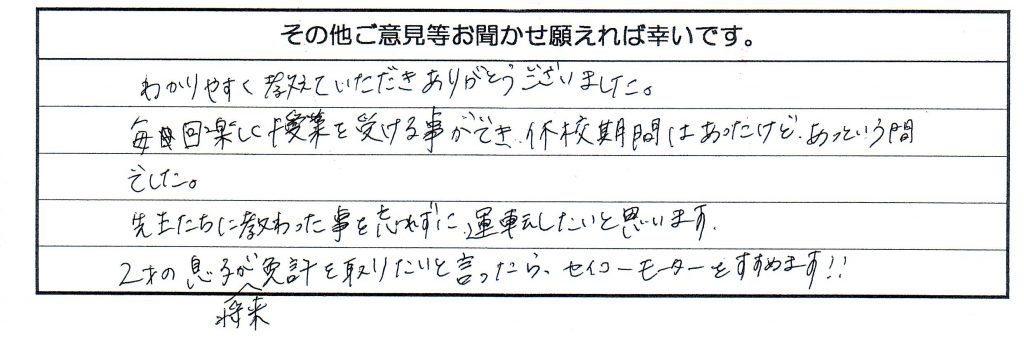 その他ご意見等お聞かせ願えれば幸いです。
わかりやすく教えていただきありがとうございました。
毎回楽しく授業を受ける事ができ、休校期間はあったけど、あっという間
でした。
先生たちに教わった事を忘れずに、運転したいと思います。
2才の息子が免許を取りたいと言ったら、セイコーモーターをすすめます!!
将来